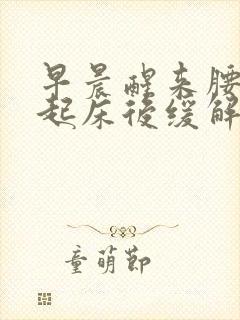 早晨醒来腰
起床后缓解
童萌节